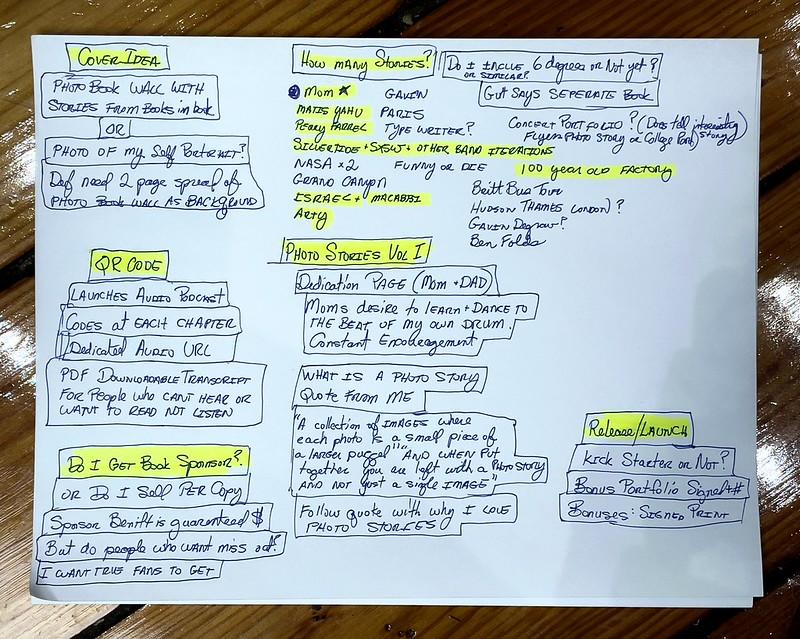 COVER IDEA
PHOTO BOOK WALL WITH
STORIES FROM BOOKS in book
OR
PHOTO OF my Self Portrait?
Def need 2 page spread of
PHOTO BOOK WALL AS BACKGROUND
QR CODE
LAUNCHES AUDIO PODCAST
CODES at EACH CHAPTER
Dedicated AUDIO URL
PDF DOWNLOADABLE TRANSCRIPT
FOR PEOPLE who CANT HEAR OR
WANT TO READ NOT LISTEN
Do I GET BOOK SPONSOR?
OR DO I SELL PER COPY
Sponsor Benift is guaranteed $
But do people who want miss out?
I WANT TRUE FANS TO GET
HOW MANY STORIES?
MOM
MATIS YAHU
PERRY FARREL
SILVERTIDE + SXSW + OTHER BAND ITERATIONS
NASA x2
GRAND CANYON
ISRAEL + MACABBI
ARTY
GAVIN
PARIS
TYPE WRITER?
FUNNY OR DIE
Do I INCLUE 6 degrees or Not yet?
OR SIMILAR?
GUT SAYS SEPERATE BOOK
CONCERT PORTFOLIO? (Does tell interesting
Flyers PHOTO STORY or College Port) Story
100 year old FACTORY
Britt Bus Tour
HUDSON THAMES LONDON)?
GAVIN Degraw?
Ben Folds
PHOTO STORIES VOL I
Dedication PAGE (Mom + DAD)
Moms desire to learn + DANCE TO
THE BEAT OF my OWN DRUM.
Constant Encouragement
WHAT IS A PHOTO STORY
Quote From ME
"A collection of IMAGES where
each photo is a small piece of
a larger puzzel" "AND WHEN PUT
together you are left with a PHOTO STORY
AND NOT just a single IMAGE"
Follow quote with why I LOVE
PHOTO STORIES
Release/LAUNCH
KICK Starter or Not?
Bonus Portfolio Signed + #
Bonuses: SIGNED PRINT